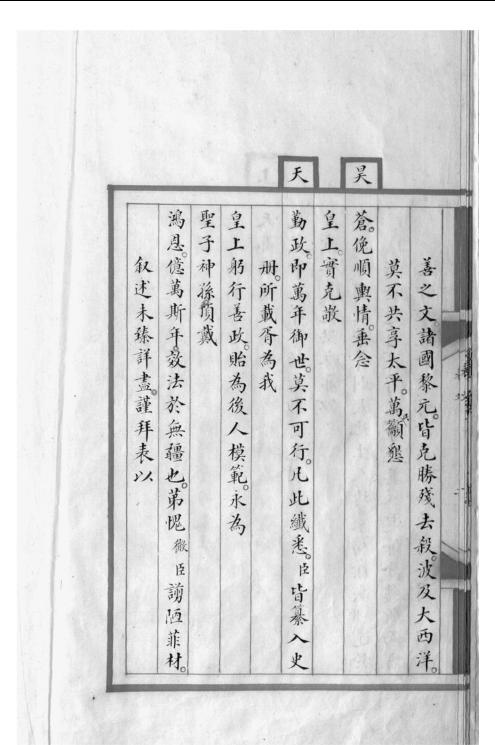 善之文。諸國黎元。皆克勝殘去殺。波及大西洋。
莫不共享太平。萬籲懇
昊蒼。俛順輿情。垂念
皇上。實克敬
天勤政。即萬年御世。莫不可行。凡此纖悉。臣皆纂入史
冊。所載胥為我
皇上躬行善政。貽為後人模範。永為
聖子神孫頂戴
鴻恩。億萬斯年。效法於無疆也。第愧微臣謭陋菲材。
叙述未臻詳盡。謹拜表以